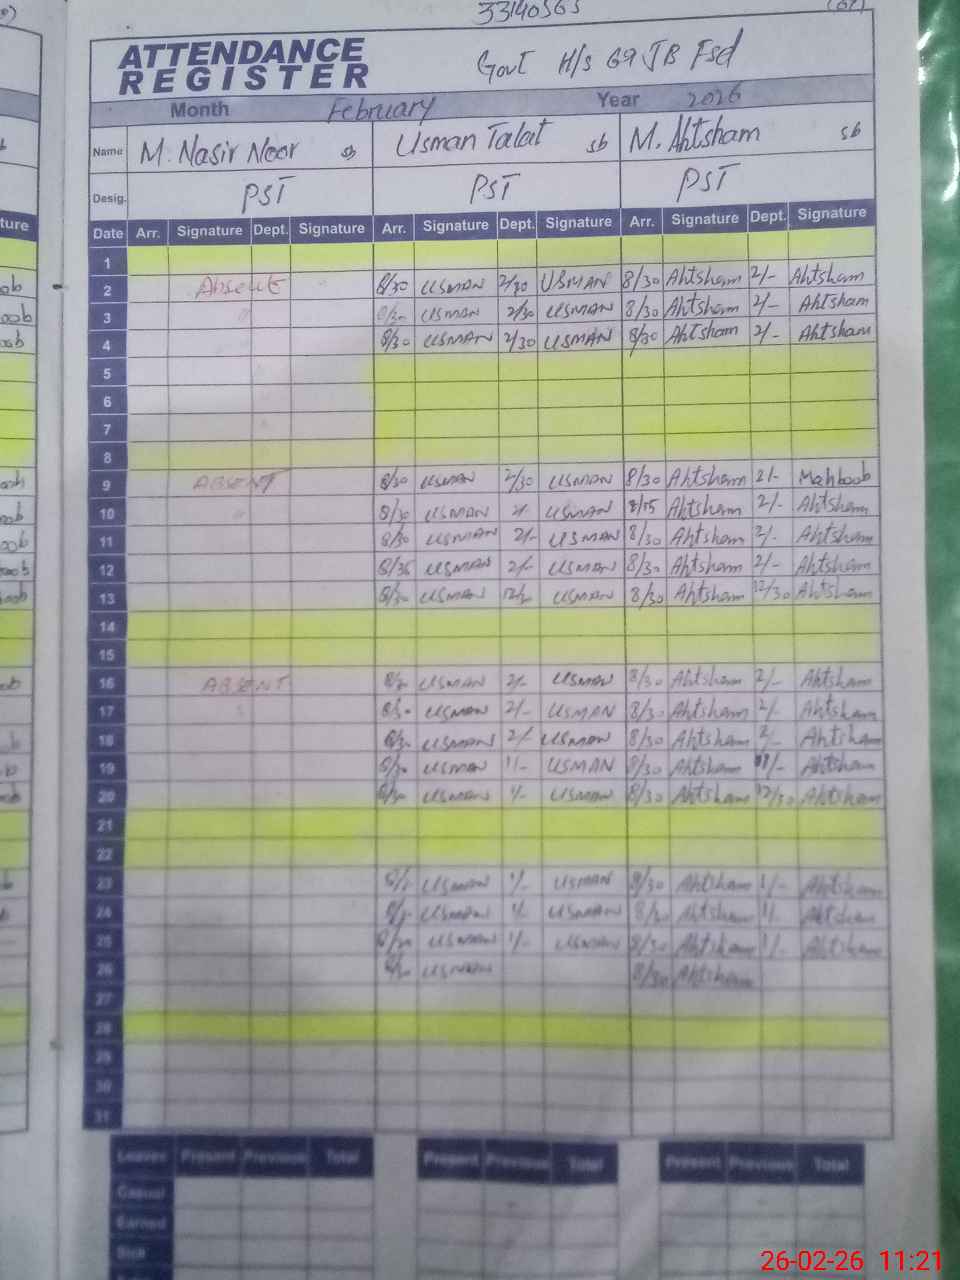 33140565
ATTENDANCE
REGISTER
Govt H/s 69 JB Fsd
Month February Year 2026
Name M. Nasir Noor sb Usman Talat sb M. Ahtsham sb
Desig. PST PST PST
Date Arr. Signature Dept. Signature Arr. Signature Dept. Signature Arr. Signature Dept. Signature
1
2 Absent 8/30 USMAN 2/30 USMAN 8/30 Ahtsham 2/- Ahtsham
3 USMAN 2/30 USMAN 8/30 Ahtsham 2/- Ahtsham
4 8/30 USMAN 2/30 USMAN 8/30 Ahtsham 2/- Ahtsham
5
6
7
8
9 ABSENT 8/30 USMAN 2/30 USMAN 8/30 Ahtsham 2/- Mahboob
10 8/30 USMAN 2/- USMAN 8/15 Ahtsham 2/- Ahtsham
11 8/30 USMAN 2/- USMAN 8/30 Ahtsham 2/- Ahtsham
12 USMAN 2/- USMAN 8/30 Ahtsham 2/- Ahtsham
13 USMAN USMAN 8/30 Ahtsham 12/30 Ahtsham
14
15
16 ABSENT USMAN 2/- USMAN 8/30 Ahtsham 2/- Ahtsham
17 USMAN 2/- USMAN 8/30 Ahtsham 2/- Ahtsham
18 8/30 USMAN 2/- USMAN 8/30 Ahtsham 2/- Ahtsham
19 8/30 USMAN 1/- USMAN 8/30 Ahtsham 1/- Ahtsham
20 8/30 USMAN 1/- USMAN 8/30 Ahtsham 12/30 Ahtsham
21
22
23 USMAN 1/- USMAN 8/30 Ahtsham 1/- Ahtsham
24 USMAN 1/- USMAN 8/30 Ahtsham 1/- Ahtsham
25 8/30 USMAN 1/- USMAN 8/30 Ahtsham 1/- Ahtsham
26 USMAN 8/30 Ahtsham
27
28
29
30
31
Leaves Present Previous Total Present Previous Total Present Previous Total
Casual
Earned
Sick
26-02-26 11:21